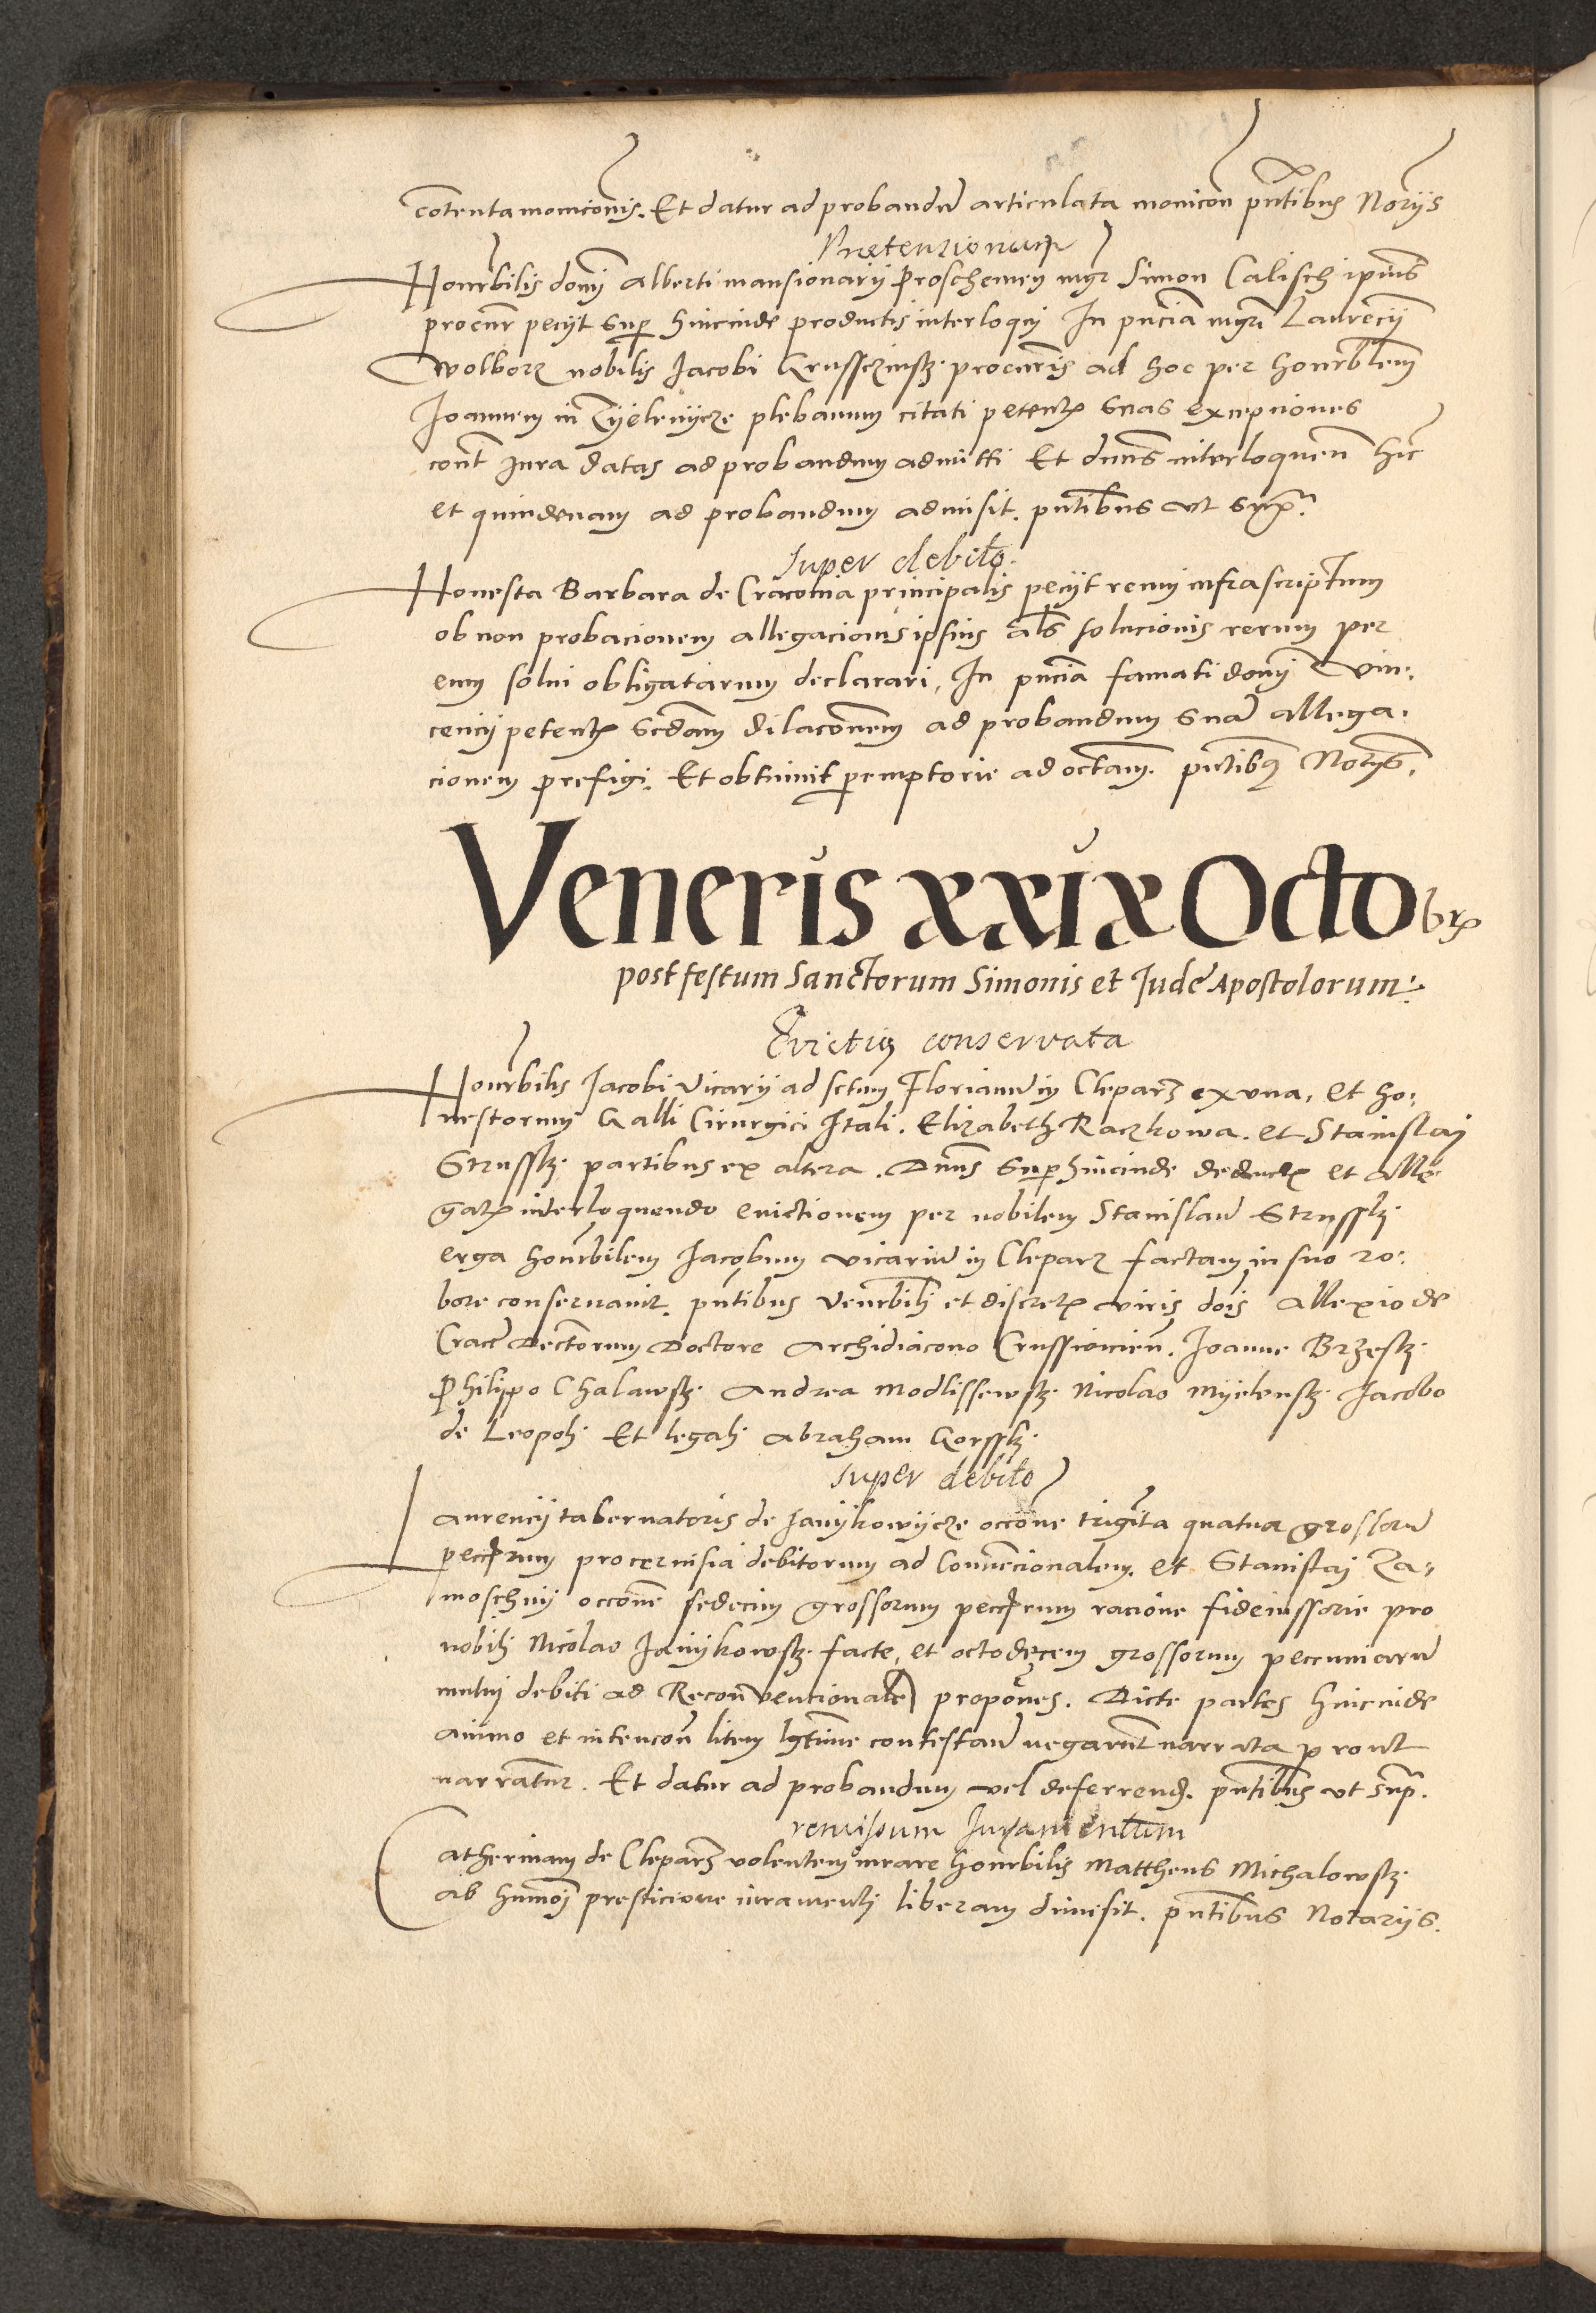 cotenta monicionis. Et datur ad probandu articulata monicon pntibus Noriis
Pretensionum
Honrbilis domi Alberti mansionarij Proschemen mgr Simon Calisch ipius
procur pecijt sup hincinde productis interloqui In pncia mgri Laurecij
wolborz nobilis Jacobi Krussczinsk. procuris ad hoc per honrblem
Joannem in Zijelenijcze plebanum citati petent suas exepciones
cont Jura datas ad probandum admitti Et dnus interloquen hic
et quindenam ad probandum admisit. pntibus vt supra.
Super debito.
Honesta Barbara de Cracovia principalis pecijt reum infrascriptum
ob non probacionem allegacionis ipsius als solucionis rerum per
eum solui obligatarum declarari, In pncia famati domi Vin:
cencij petent scdam dilaconem ad probandum sua allega:
cionem prefigi. Et obtinuit peremptorie ad octam. pntibus Norys.
Veneris xxix Octobr
post festum Sanctorum Simonis et Jude Apostolorum:
Evictio conservata
Honrbilis Jacobi Vicarij ad sctum Florianu in Cleparz ex una, et ho:
nestorum Galli Cirurgici Itali. Elizabeth Raczkowa. et Stanislai
Strussk. partibus ex altera. Dnus sup hincinde deduct et alle:
gat interloquendo euictionem per nobilem Stanislau Strussk.
erga honrbilem Jacobum vicariu in Cleparz factam in suo ro:
bore conseruauit. pntibus Venrbili et discret viris dois Allexio de
Crac Dectorum Doctore Archidiacono Crussvicien. Joanne Brzesk.
Philippo Chalawsk. Andrea Modlissewsk. Nicolao Myelensk. Jacobo
de Leopoli. Et legali. Abraham Gorssk.
Super debito
Laurencij tabernatoris de Janijkowijcze occone triginta quatuor grossoru
peccrum pro ceruisia debitorum ad Conuencionalem. et Stanislai Za:
moschnij occone sedecim grossorum peccrum racione fideiussorie pro
nobili Nicolao Janijkowsk. facte, et octodecem grossorum peccuniaru
mutui debiti ad Reconuentionale propones. Dicte partes hincinde
animo et intencon litem lgtime contestan negarunt narrata prout
narrantur. Et datur ad probandum vel deferrend. pntibus vt sup.
remissum Juramentum
Catherinam de Cleparz volentem iurare honrbilis Mattheus Michalowsk.
ab hnmoi presticione iuramenti liberam dimisit. pntibus Notarijs.